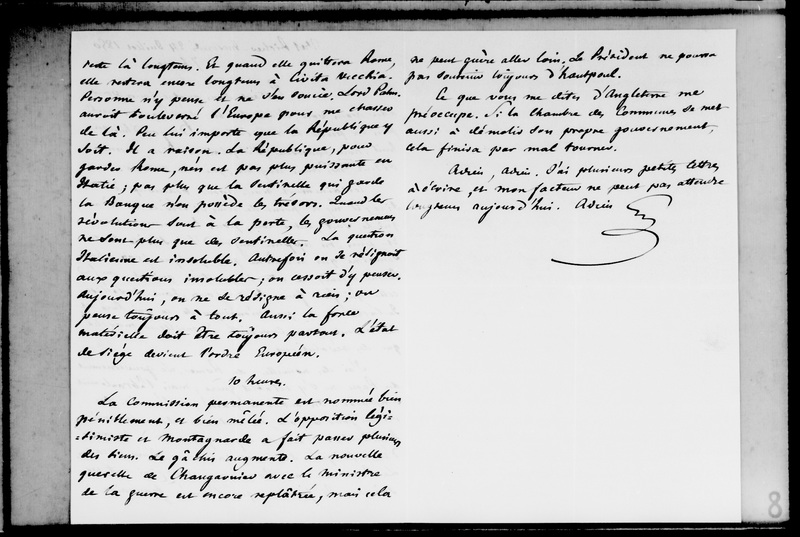 reste là longtems. Et quand elle quittera Rome,
elle restera encore longtems à Civita Vecchia.
Personne n'y pense et ne s'en soucie. Lord Palm.
auroit bouleversé l'Europe pour me chasser
de là. Peu lui importe que la République y
soit. Il a raison. La République, pour
garder Rome, n'en est pas plus puissante en
Italie ; pas plus que la Sentinelle qui garde
la Banque n'en possède les trésors. Quand les
révolutions sont à la porte, les gouvernemens
ne sont plus que des sentinelles. La question
Italienne est insoluble. Autrefois on se résignoit
aux questions insolubles ; on cessoit d'y penser.
Aujourd'hui, on ne se résigne à rien ; on
pense toujours à tout. Aussi la force
matérielle doit être toujours partout. L'état
de siége devient l'ordre Européen.
10 heures.
La Commission permanente est nommée bien
péniblement, et bien mêlée. L'opposition légi-
-timiste et montagnarde a fait passer plusieurs
des siens. Le gâchis augmente. La nouvelle
querelle de Changarnier avec le ministre
de la guerre est encore replâtrée, mais cela
ne peut guère aller loin. Le Président ne pourra
pas soutenir toujours d'hautpoul.
Ce que vous me dites d'Angleterre me
préoccupe. Si la chambre des Communes se met
aussi à démolir son propre gouvernement,
cela finira par mal tourner.
Adieu, Adieu. J'ai plusieurs petites lettres
à écrire, et mon facteur ne peut pas attendre
longtems aujourd'hui. Adieu
8